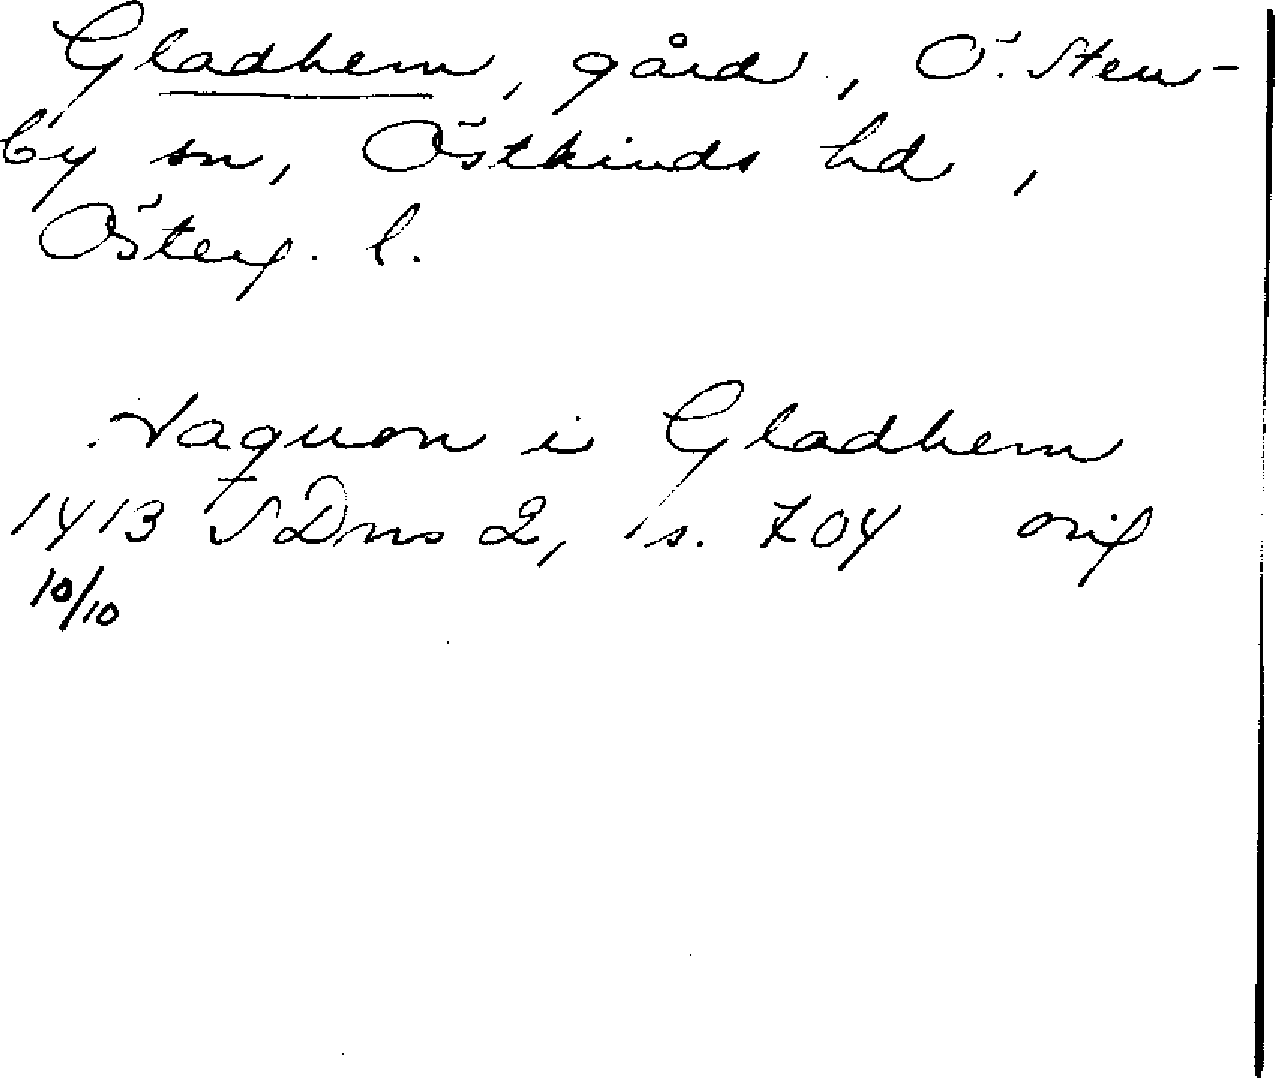 Gladhem, gård, Ö. Sten-
by sn, Östkinds hd,
Österg. l.
Haquon i Gladhem
1413 SDns 2, s. 704 orig
10/10